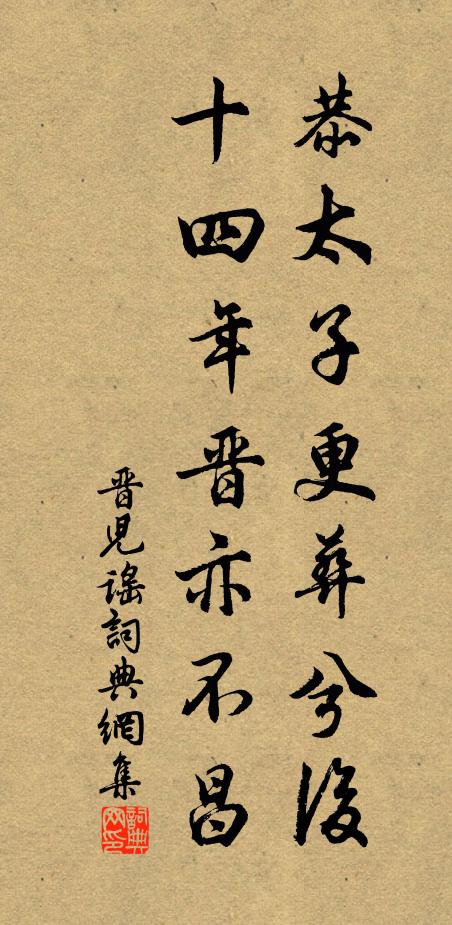 恭太子更葬兮後
十四年晋亦不昌
晋児謡詞典網集
詞典
网印